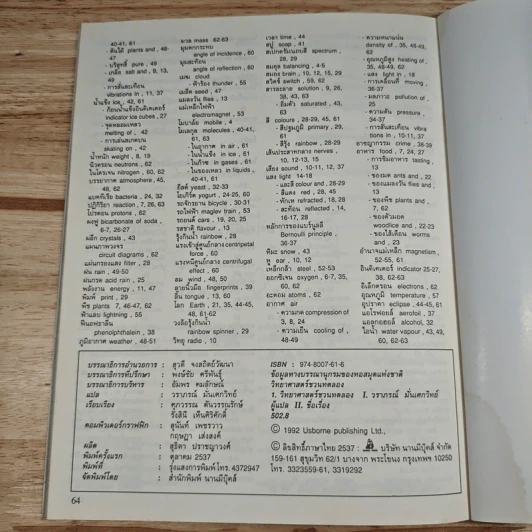 40-41, 61
- ต้นไม้ plants and, 46-
47
- บริสุทธิ์ pure, 49
- เกลือ salt and, 8, 13,
49
- การสั่นสะเทือน
vibrations in, 11, 37
น้ำแข็ง ice, 42, 61
- ก้อนน้ำแข็งอินดิเคเตอร์
indicator ice cubes, 27
- จุดหลอมเหลว
melting of, 42
- การเล่นสเกตบน
skating on, 42
น้ำหนัก weight, 8, 19
นิวตรอน neutrons, 62
ไนโตรเจน nitrogen, 60, 62
บรรยากาศ atmosphere, 45,
48, 62
แบคทีเรีย bacteria, 24, 32
ปฏิกิริยา reaction, 7, 26, 63
โปรตอน protons, 62
ผงฟู bicarbonate of soda,
6-7, 26-27
ผลึก crystals, 43
แผนภาพวงจร
circuit diagrams, 62
แผ่นกรองแสง filter, 28
ฝน rain, 49-50
ฝนกรด acid rain, 25
พลังงาน energy, 11, 47
พิมพ์ print, 29
พืช plants 7, 46-47, 62
ฟ้าแลบ lightning, 55
ฟีนอฟทาลีน
phenolphthalein, 38
ภูมิอากาศ weather, 48-51
มวล mass 62-63
มุมตกกระทบ
angle of incidence, 60
มุมสะท้อน
angle of reflection, 60
เมฆ cloud
- ฟ้าร้อง thunder, 55
เมล็ด seed, 47
แมลงวัน flies, 13
แม่เหล็กไฟฟ้า
electromagnet, 53
โมบายล์ mobile, 4
โมเลกุล molecules, 40-41,
61, 63
- ในอากาศ in air, 61
- ในน้ำแข็ง in ice, 61
- ในก๊าซ in gases, 61
- ในของเหลว in liquids,
40-41, 61
ยีสต์ yeast, 32-33
โยเกิร์ต yogurt, 24-25, 60
รถจักรยาน bicycle, 30-31
รถไฟฟ้า maglev train, 53
รถยนต์ cars, 19, 20, 25
รสชาติ flavour, 13
รุ้งกินน้ำ rainbow, 28
แรงเข้าสู่ศูนย์กลาง centripetal
force, 60
แรงหนีศูนย์กลาง centrifugal
effect, 60
ลม wind, 48, 50
ลายนิ้วมือ fingerprints, 39
ลิ้น tongue, 13, 60
โลก Earth, 21, 35, 44-45,
48, 61-62
วงล้อรุ้งกินน้ำ
rainbow spinner, 29
วิทยุ radio, 10
เวลา time, 44
สบู่ soap, 41
สเปกตรัมแถบสี spectrum,
28, 29
สมดุล balancing, 4-5
สมอง brain, 10, 12, 15, 29
สวิตช์ switch, 59, 62
สารละลาย solution, 9, 26,
38, 43, 63
- อิ่มตัว saturated, 43,
63
สี colours, 28-29, 45, 61
- สีปฐมภูมิ primary, 29,
61
- สีรุ้ง rainbow, 28-29
เส้นประสาทกลาง nerves,
10, 12-13, 15
เสียง sound, 10-11, 12, 37
แสง light 14-18
- แสงสี colour and, 28-29
- สีแดง red, 28, 45
- หักเห refracted, 18, 28
- สะท้อน reflected, 14,
16-17, 28
หลักการของแบร์นูลลี
Bernoulli principle,
36-37
หิมะ snow, 43
หู ear, 10, 12
เหล็กกล้า steel, 52-53
ออกซิเจน oxygen, 6-7, 35,
60, 62
อะตอม atoms, 62
อากาศ air
- ความกด compression of
3, 8, 24
- ความเย็น cooling of,
48-49
- ความหนาแน่น
density of, 35, 48-49,
62
- อุณหภูมิสูง heating of,
35, 48-49, 62
- แสง light in, 18
- การเคลื่อนที่ moving,
36-37
- มลภาวะ pollution of,
25
- ความดัน pressure,
34-37
- การสั่นสะเทือน vibra
tions in, 10-11, 37
อาชญากรรม crime, 38-39
อาหาร food, 7, 24, 27
- การชิมอาหาร tasting,
13
- ของมด ants and, 22
- ของแมลงวัน flies and,
13
- ของพืช plants and,
7, 62
- ของตัวมอด
woodlice and, 22-23
- ของไส้เดือน worms
and, 23
อำนาจแม่เหล็ก magnetism,
52-55, 61
อินดิเคเตอร์ indicator 25-27,
38, 62-63
อิเล็กตรอน electrons, 62
อุณหภูมิ temperature, 57
อุปราคา eclipse, 44-45, 61
แอโรฟอยล์ aerofoil, 37
แอลกอฮอล์ alcohol, 32
ไอน้ำ water vapour, 43, 49,
60, 62-63
บรรณาธิการอำนวยการ : สุวดี จงสถิตย์วัฒนา
บรรณาธิการที่ปรึกษา : พงษ์ชัย ศรีพันธุ์
บรรณาธิการบริหาร : อัมพร คมลักษณ์
แปล : วราภรณ์ มั่นเศกวิทย์
เรียบเรียง : ศุภวรรณ ตันวรรณรักษ์
รังสินี เห็นศิริศักดิ์
คอมพิวเตอร์กราฟฟิก : สุนันท์ เพชราวา
กฤษฎา เส่งสงค์
ผลิต : สุธิดา ปราชญาวงศ์
พิมพ์ครั้งแรก : ตุลาคม 2537
พิมพ์ที่ : รุ่งแสงการพิมพ์โทร.4372947
จัดพิมพ์โดย : สำนักพิมพ์ นานมีบุ๊คส์
ISBN : 974-8007-61-6
ข้อมูลทางบรรณานุกรมของหอสมุดแห่งชาติ
วิทยาศาสตร์ชวนทดลอง
1. วิทยาศาสตร์ชวนทดลอง I. วราภรณ์ มั่นเศกวิทย์
ผู้แปล II. ชื่อเรื่อง
502.8
© 1992 Usborne publishing Ltd.,
© ลิขสิทธิ์ภาษาไทย 2537 : บริษัท นานมีบุ๊คส์ จำกัด
159-161 สุขุมวิท 62/1 บางจาก พระโขนง กรุงเทพฯ 10250
โทร. 3323559-61, 3319292
64